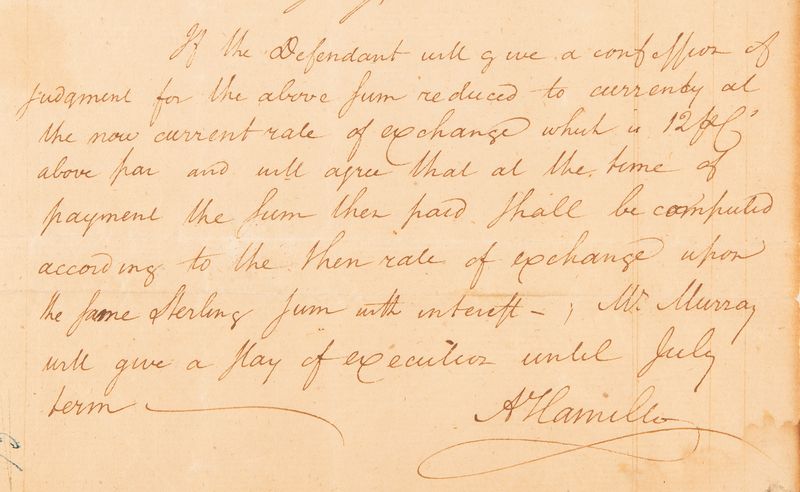 If the Defendant will give a confession of
judgment for the above sum reduced to currency at
the now current rate of exchange which is 12 ⅌ Ct
above par and will agree that at the time of
payment the sum then paid shall be computed
according to the then rate of exchange upon
the same Sterling sum with interest – ; Mr. Murray
will give a stay of execution until July
term
A Hamilton